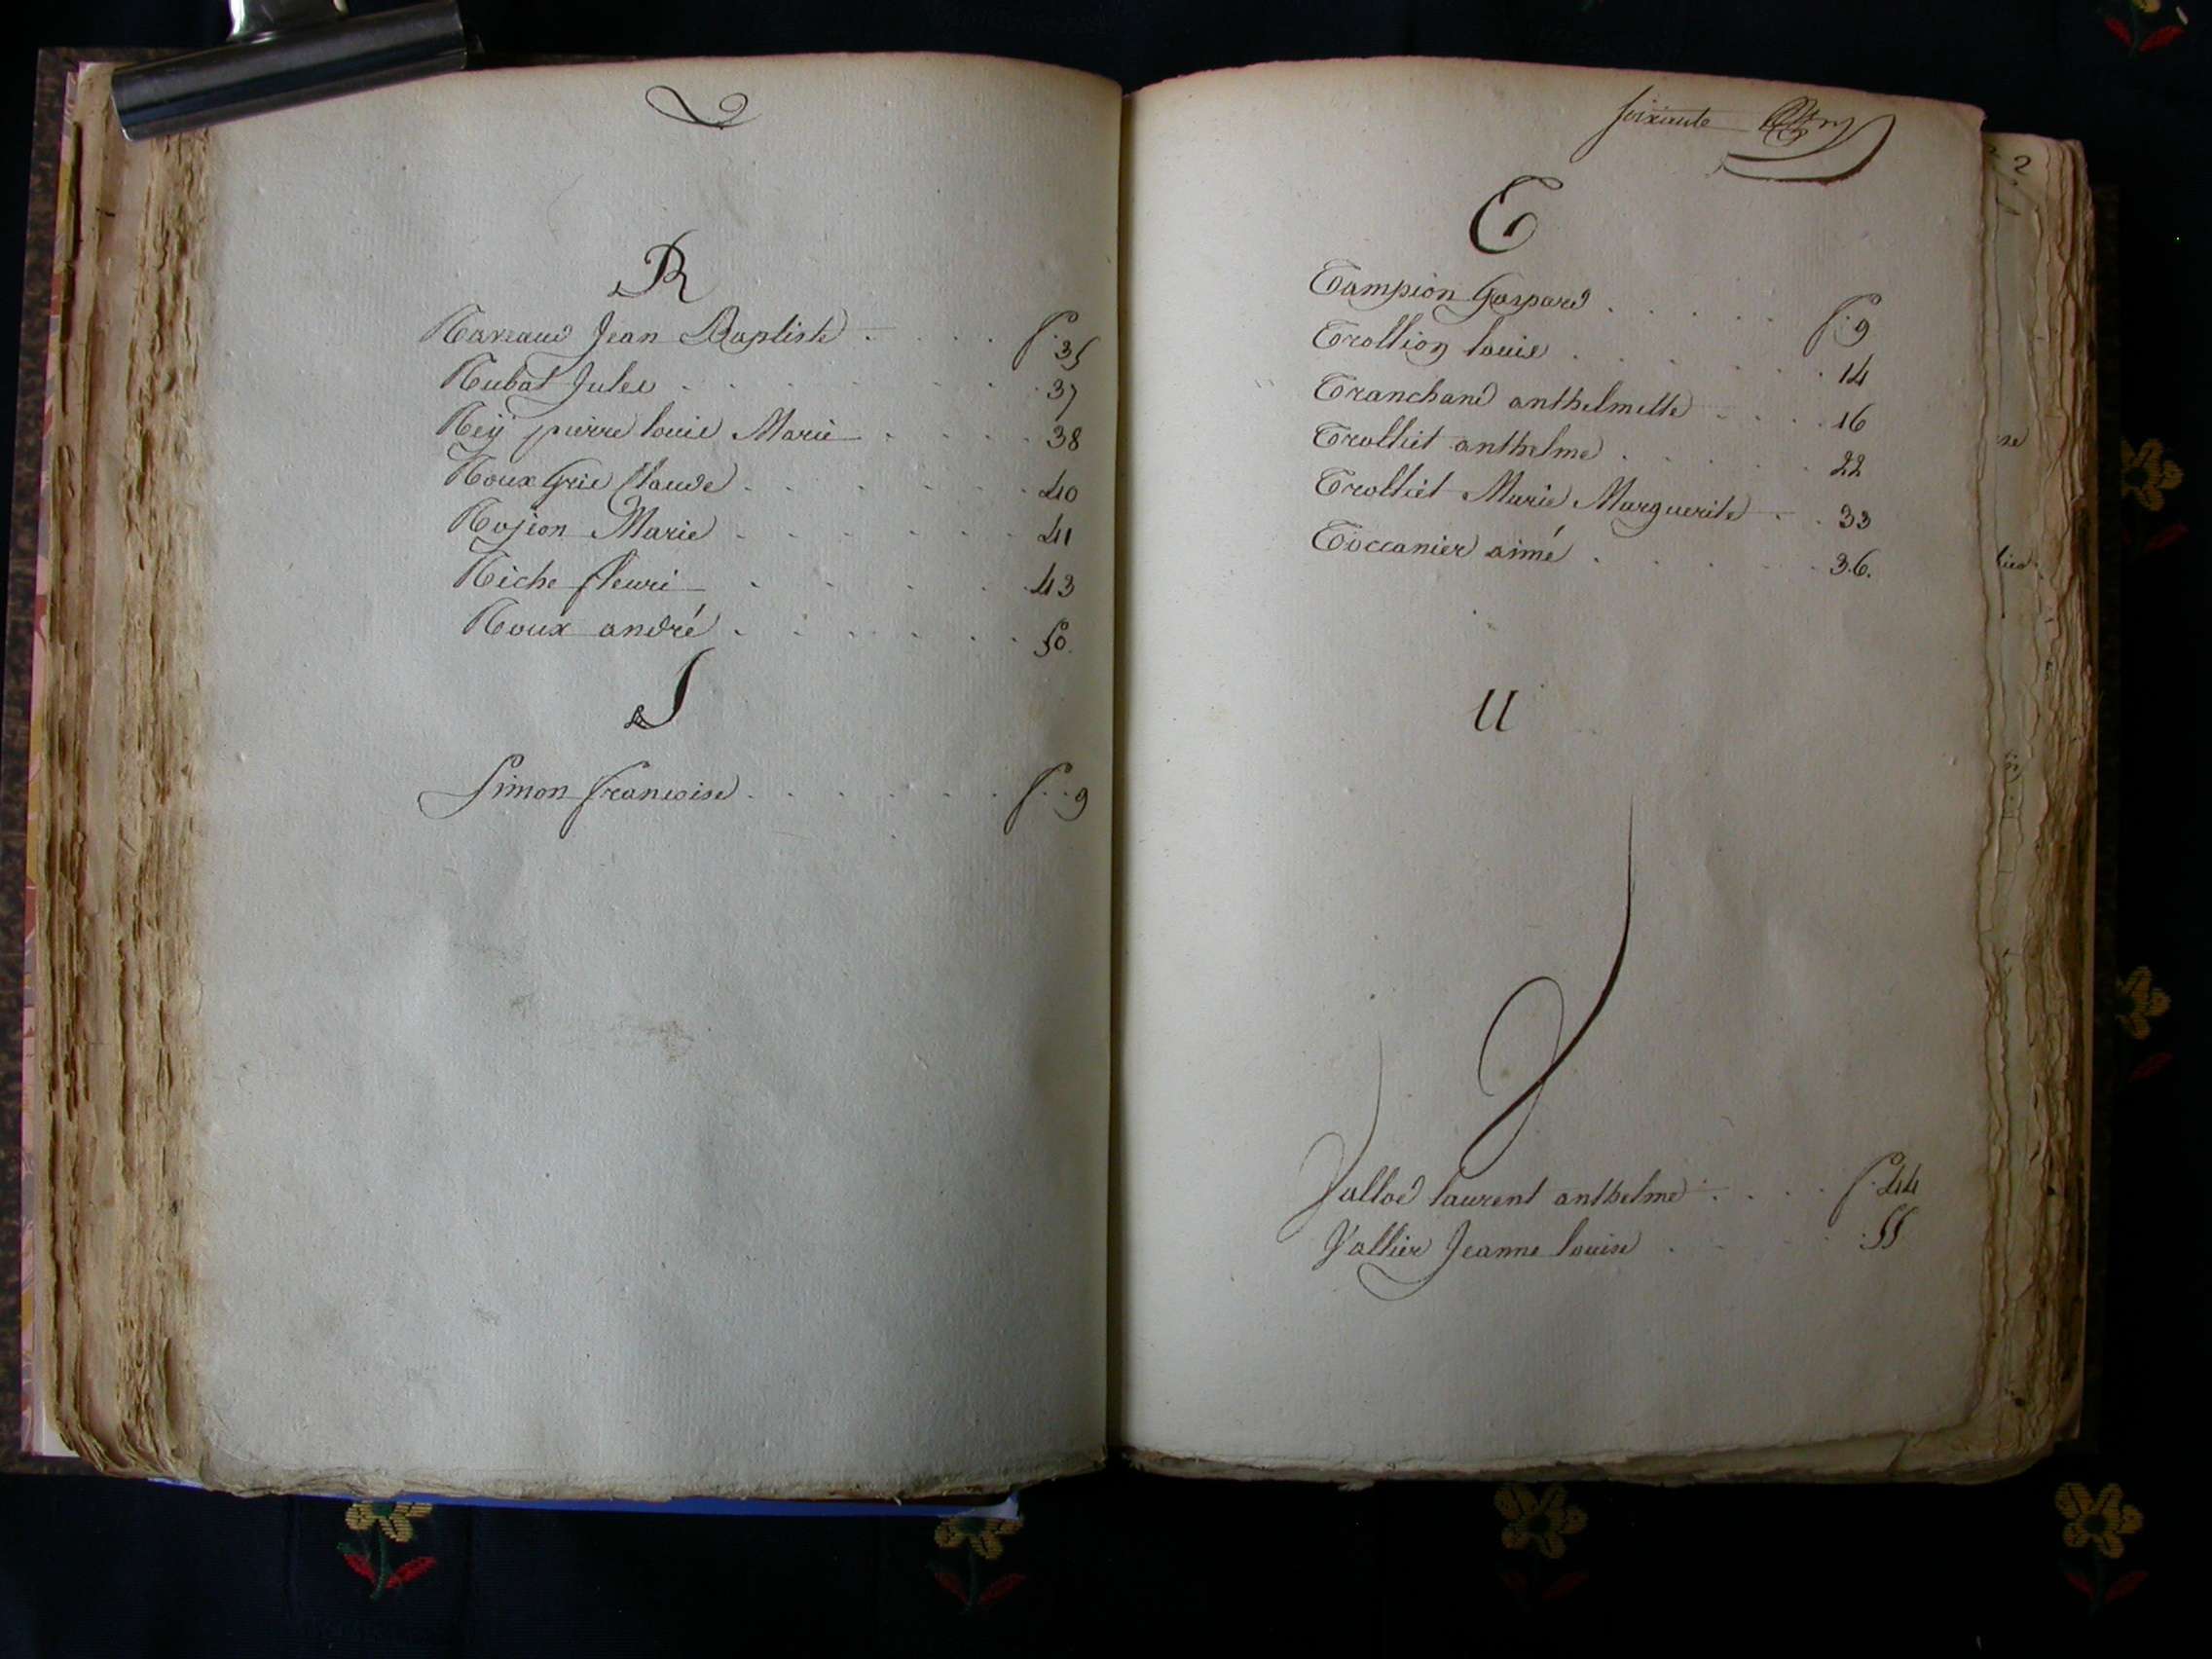 Q
R
Raveaud Jean Baptiste . . . . f.° 35
Rubat Jules . . . . . . . 37
Rey pierre louis Marie . . . . 38
Roux Claude . . . . . . 40
Rojion Marie . . . . . . 41
Riche fleuri . . . . 43
Roux andré . . . . . . 50.
S
Simon francoise . . . . . . f.° 9
soixante
T
Tampion Gaspard . . . . . f.° 9
Trollion louis . . . . . . 14
Tranchand anthelmette . . . . 16
Trolliet anthelme . . . . . 22
Trolliet Marie Marguerite . . 33
Toccanier aimé . . . . . 36.
U
V
Vallod laurent anthelme . . . . f.° 44
Vallier Jeanne louise . . . . 55
2